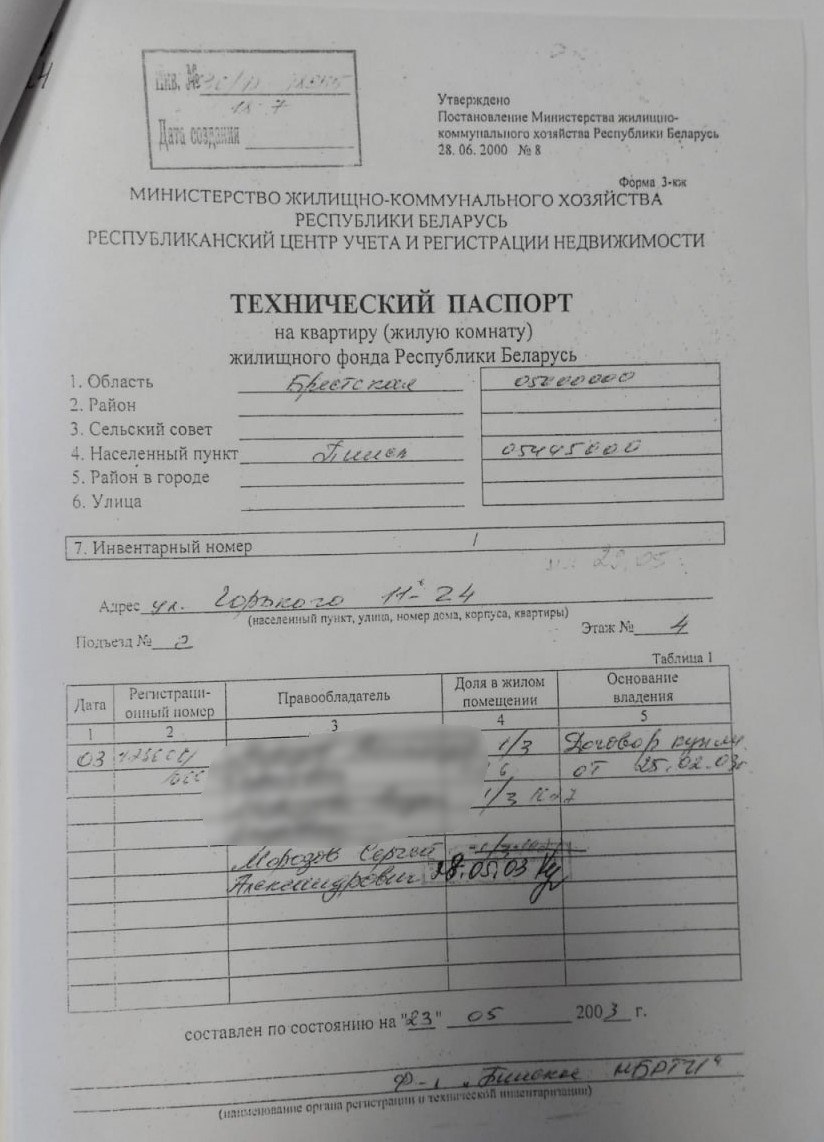 Инв. №
18 7
Дата создания
Утверждено
Постановление Министерства жилищно-
коммунального хозяйства Республики Беларусь
28. 06. 2000 № 8
Форма 3-кж
МИНИСТЕРСТВО ЖИЛИЩНО-КОММУНАЛЬНОГО ХОЗЯЙСТВА
РЕСПУБЛИКИ БЕЛАРУСЬ
РЕСПУБЛИКАНСКИЙ ЦЕНТР УЧЕТА И РЕГИСТРАЦИИ НЕДВИЖИМОСТИ
ТЕХНИЧЕСКИЙ ПАСПОРТ
на квартиру (жилую комнату)
жилищного фонда Республики Беларусь
1. Область Брестская 05000000
2. Район
3. Сельский совет
4. Населенный пункт Пинск 05445000
5. Район в городе
6. Улица
7. Инвентарный номер /
29.05
Адрес ул. Горького 11-24
(населенный пункт, улица, номер дома, корпуса, квартиры)
Подъезд № 2 Этаж № 4
Таблица 1
Дата Регистраци-онный номер Правообладатель Доля в жилом помещении Основание владения
1 2 3 4 5
03 1/3 Договор купли
от 25.02.03г
1/3
Морозов Сергей
Александрович 28.05.03
составлен по состоянию на "23" 05 2003 г.
Ф-л "Пинское МБРТИ"
(наименование органа регистрации и технической инвентаризации)